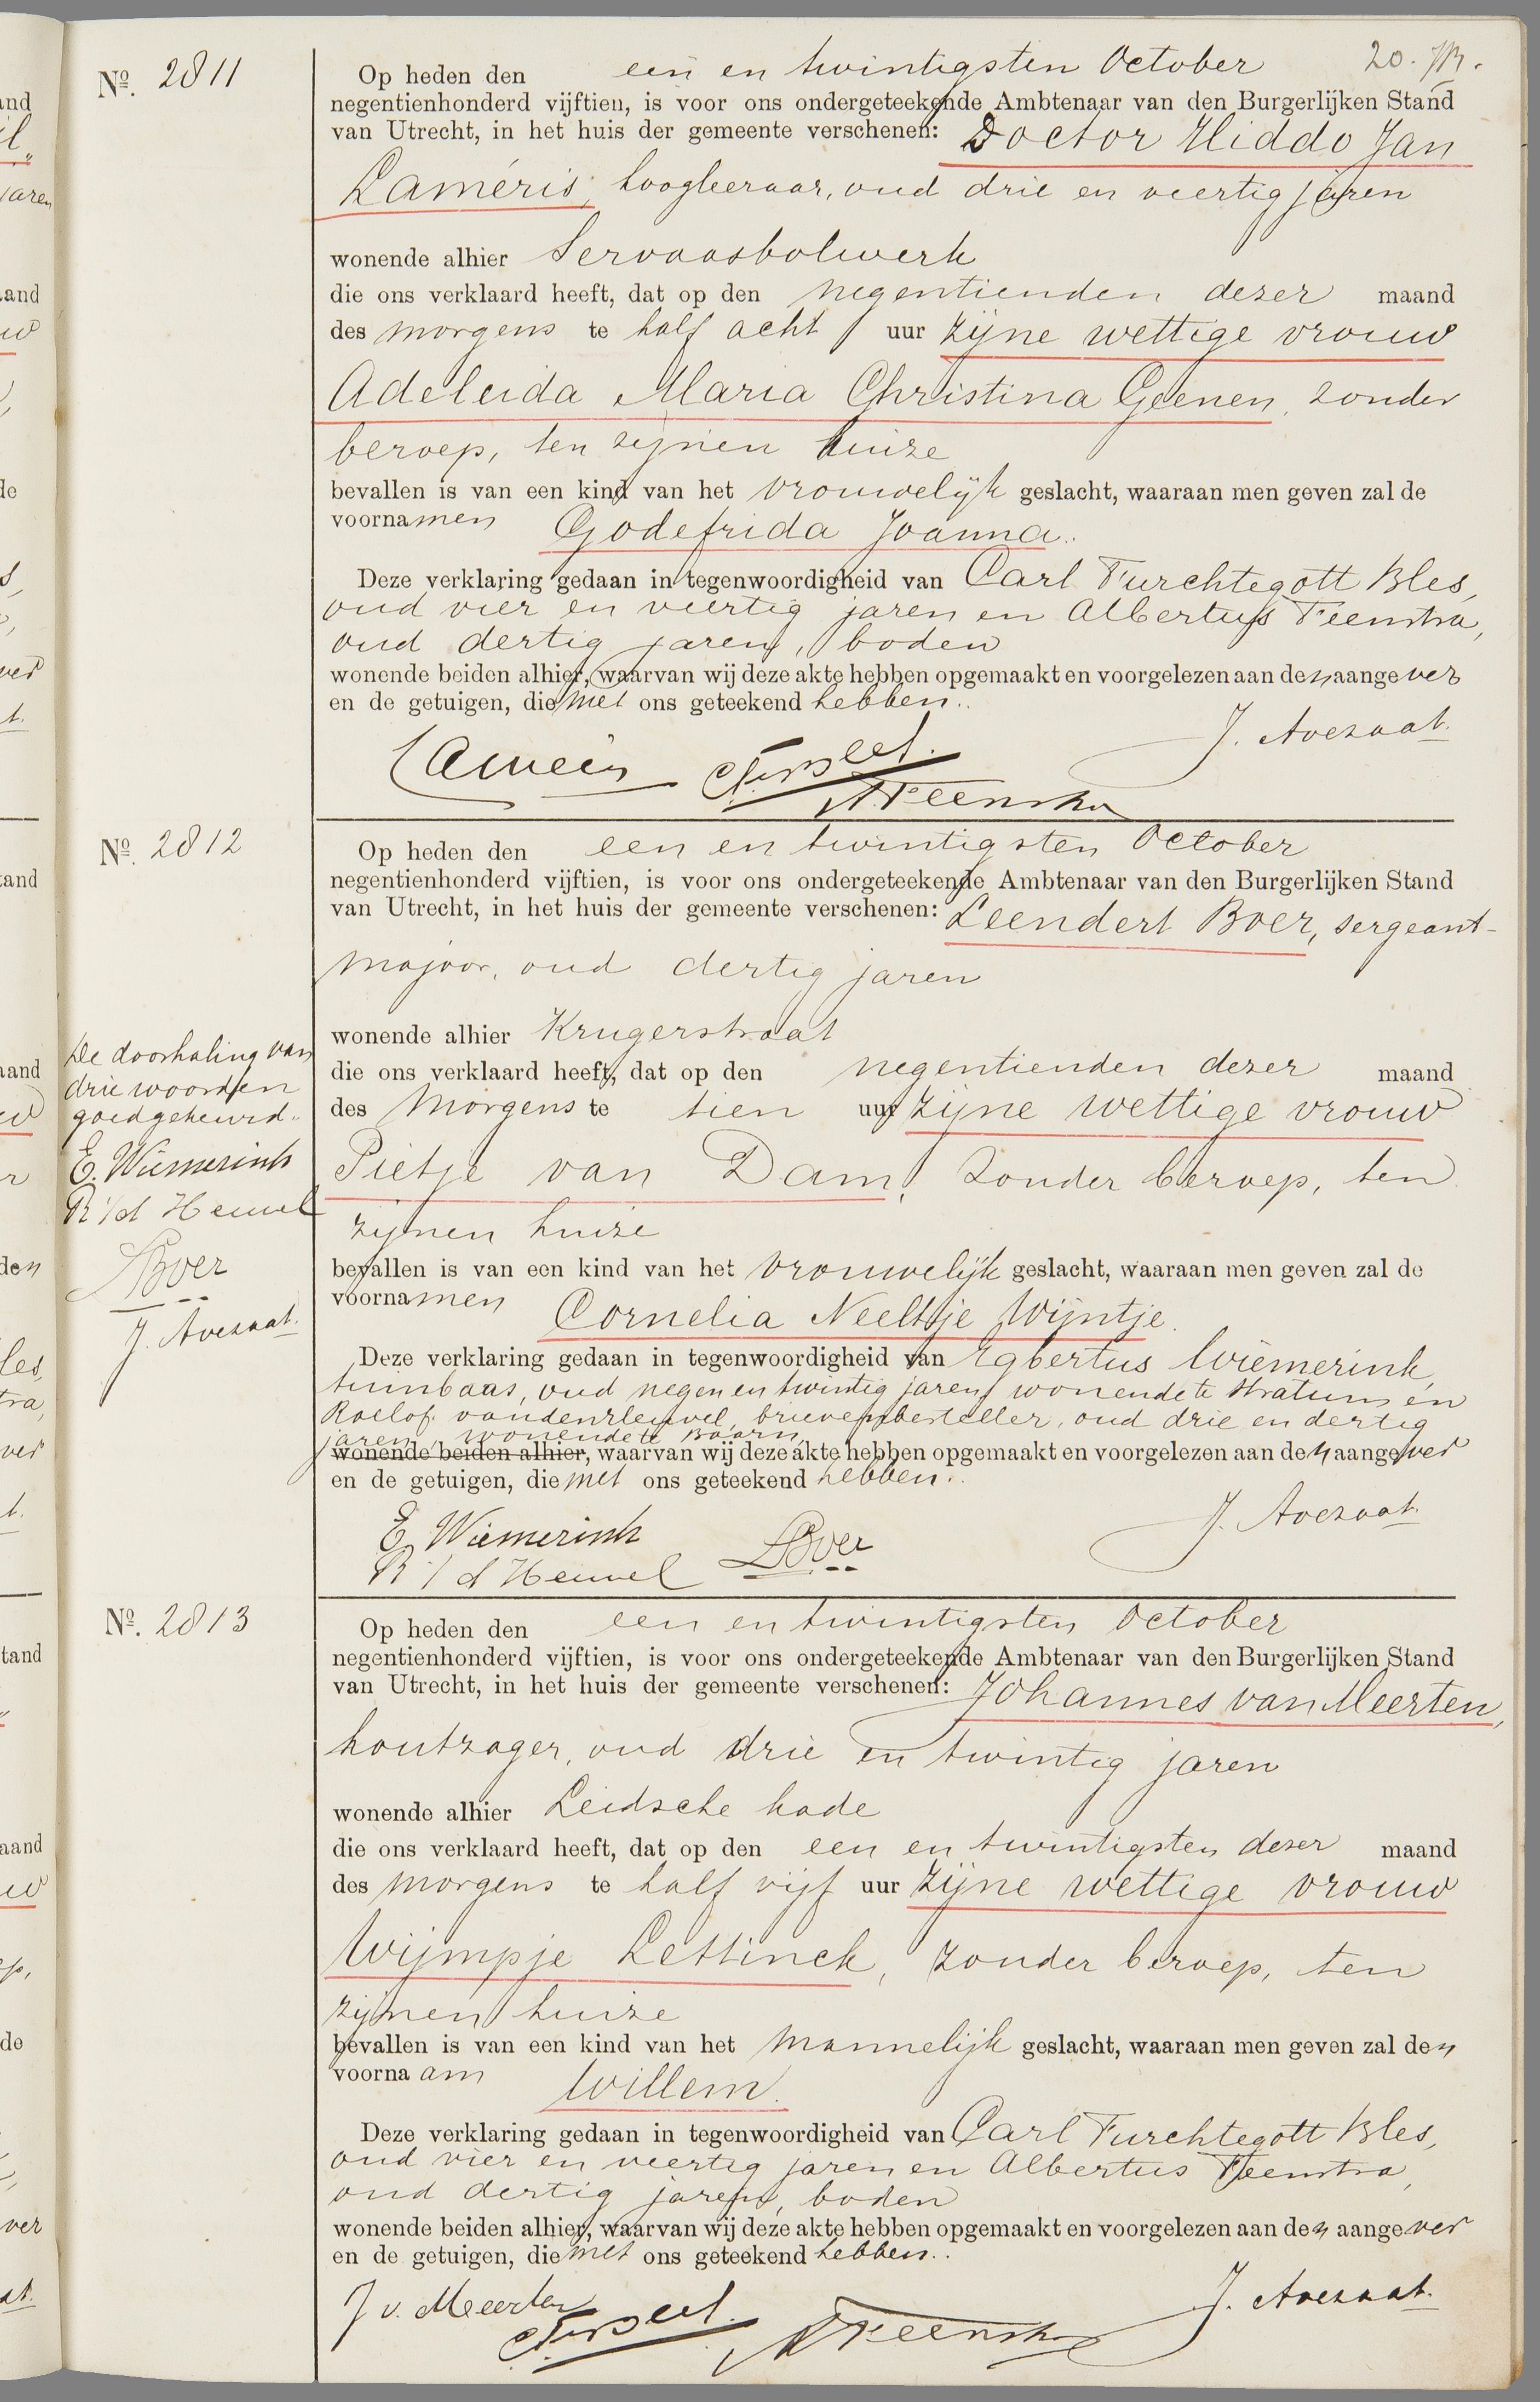 20.
Nº. 2811
Op heden den een en twintigsten October
negentienhonderd vijftien, is voor ons ondergeteekende Ambtenaar van den Burgerlijken Stand
van Utrecht, in het huis der gemeente verschenen: Doctor Hiddo Jan
Laméris, hoogleeraar, oud drie en veertig jaren
wonende alhier Servaasbolwerk
die ons verklaard heeft, dat op den negentienden dezer maand
des morgens te half acht uur zijne wettige vrouw
Adeleida Maria Christina Geenen, zonder
beroep, ten zijnen huize
bevallen is van een kind van het vrouwelijk geslacht, waaraan men geven zal de
voornamen Godefrida Joanna.
Deze verklaring gedaan in tegenwoordigheid van Carl Furchtegott Bles,
oud vier en veertig jaren en Albertus Feenstra,
oud dertig jaren, boden
wonende beiden alhier, waarvan wij deze akte hebben opgemaakt en voorgelezen aan den aangever
en de getuigen, die met ons geteekend hebben.
J. Avezaat.
Laméris
AFeenstra
Nº. 2812
Op heden den een en twintigsten October
negentienhonderd vijftien, is voor ons ondergeteekende Ambtenaar van den Burgerlijken Stand
van Utrecht, in het huis der gemeente verschenen: Leendert Boer, sergeant-
majoor, oud dertig jaren
wonende alhier Krugerstraat
die ons verklaard heeft, dat op den negentienden dezer maand
des morgens te tien uur zijne wettige vrouw
Pietje van Dam, zonder beroep, ten
zijnen huize
bevallen is van een kind van het vrouwelijk geslacht, waaraan men geven zal de
voornamen Cornelia Neeltje Wijntje.
Deze verklaring gedaan in tegenwoordigheid van Egbertus Wiemerink,
tuinbaas, oud negen en twintig jaren wonende te Stratum en
Roelof van den Heuvel, brievenbesteller, oud drie en dertig
jaren, wonende te Baarn,
wonende beiden alhier, waarvan wij deze akte hebben opgemaakt en voorgelezen aan den aangever
en de getuigen, die met ons geteekend hebben.
De doorhaling van
drie woorden
goedgekeurd.
E. Wiemerink
R v/d Heuvel
LBoer
J. Avezaat.
E Wiemerink
R v/d Heuvel
LBoer
J. Avezaat.
Nº. 2813
Op heden den een en twintigsten October
negentienhonderd vijftien, is voor ons ondergeteekende Ambtenaar van den Burgerlijken Stand
van Utrecht, in het huis der gemeente verschenen: Johannes van Meerten,
houtzager, oud drie en twintig jaren
wonende alhier Leidsche kade
die ons verklaard heeft, dat op den een en twintigsten dezer maand
des morgens te half vijf uur zijne wettige vrouw
Wijmpje Lettinck, zonder beroep, ten
zijnen huize
bevallen is van een kind van het mannelijk geslacht, waaraan men geven zal den
voornaam Willem.
Deze verklaring gedaan in tegenwoordigheid van Carl Furchtegott Bles,
oud vier en veertig jaren en Albertus Feenstra,
oud dertig jaren, boden
wonende beiden alhier, waarvan wij deze akte hebben opgemaakt en voorgelezen aan den aangever
en de getuigen, die met ons geteekend hebben.
J v. Meerten
AFeenstra
J. Avezaat.